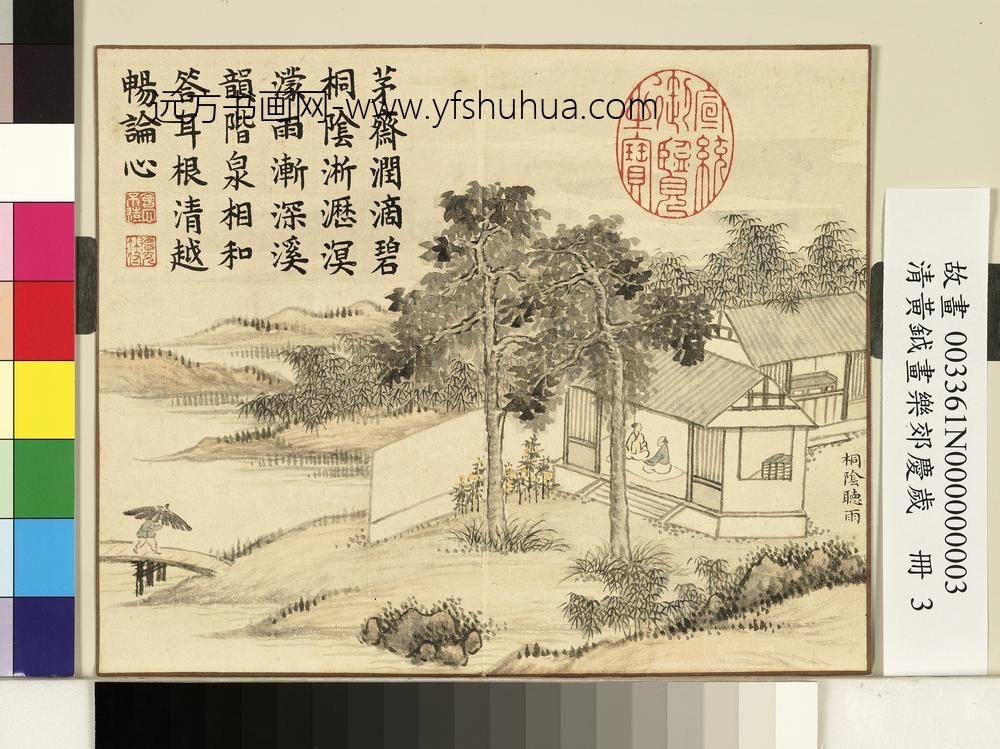 茅齋潤滴碧
桐陰淅瀝溟
濛雨漸深溪
韻階泉相和
答耳根清越
暢論心
宣統
御覽
之寶
桐陰聽雨
远方书画网-www.yfshuhua.com
故畫 003361N000000003
清黃鉞畫樂郊慶歲 冊 3